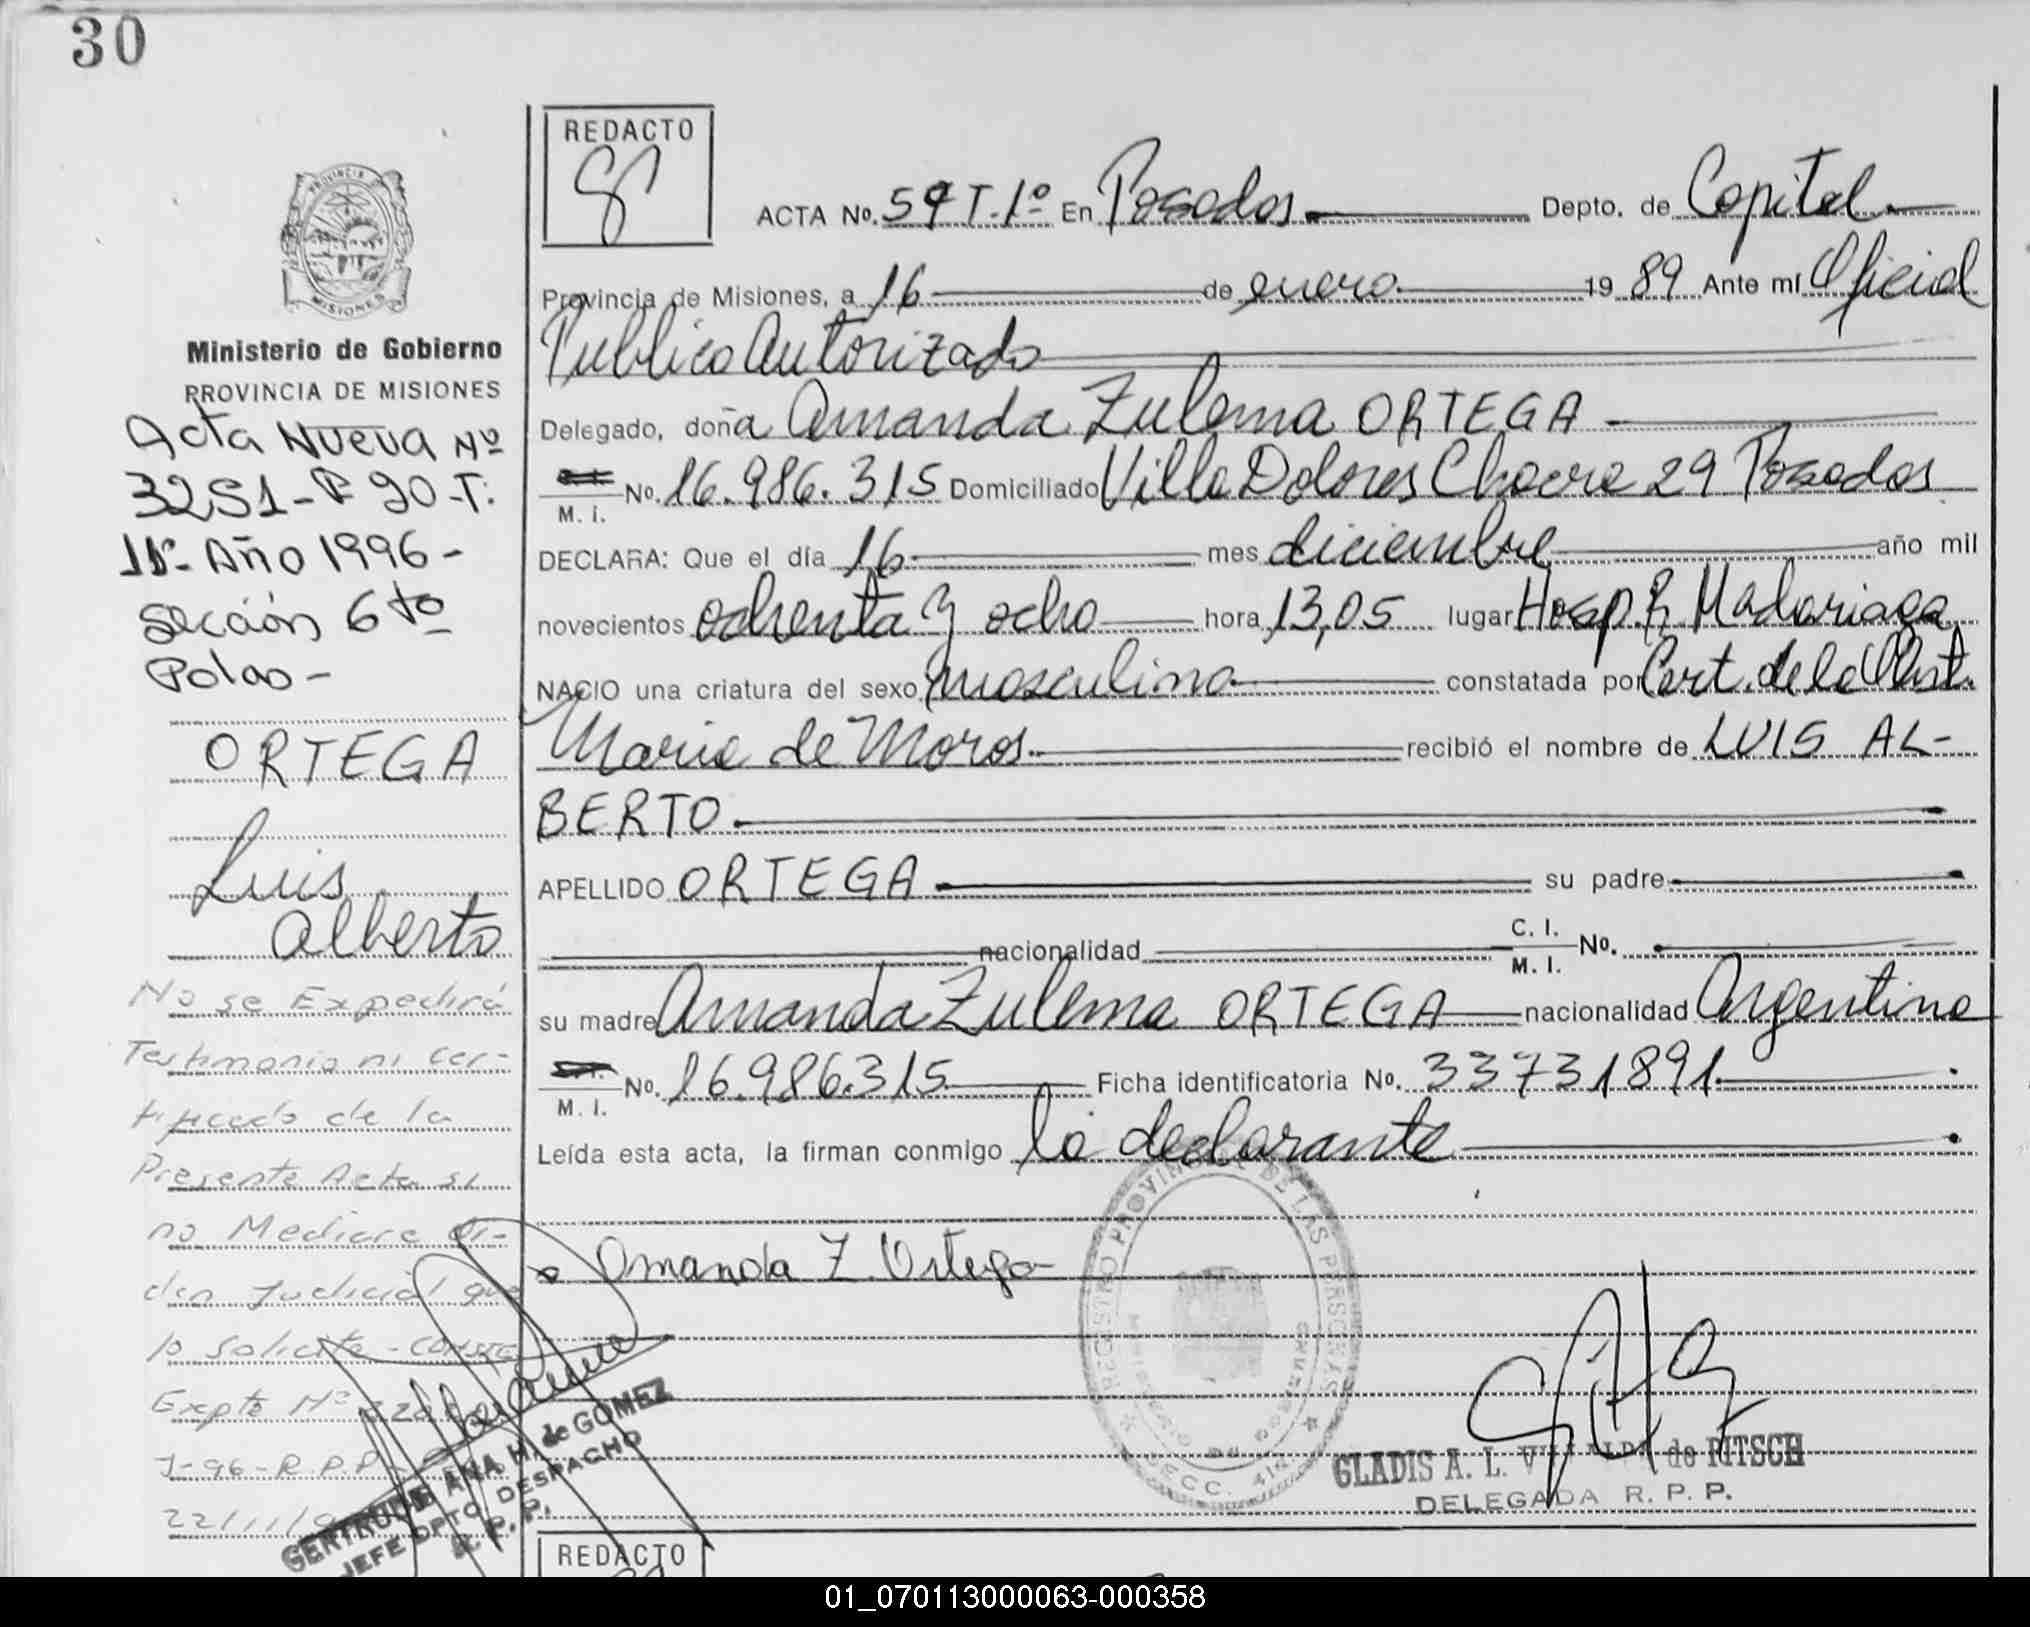 30
REDACTO
ACTA No. 59 T. 1º En Posadas Depto. de Capital
PROVINCIA
MISIONES
Provincia de Misiones, a 16 de enero 1989 Ante mí Oficial
Publico Autorizado
Ministerio de Gobierno
PROVINCIA DE MISIONES
Delegado, doña Amanda Zulema ORTEGA
No. 16.986.315 Domiciliado Villa Dolores Chacra 29 Posadas
M. I.
DECLARA: Que el día 16 mes diciembre año mil
novecientos ochenta y ocho hora 13,05 lugar Hosp. R. Madariaga
NACIO una criatura del sexo masculino constatada por Cert. de la Obst.
Maria de Moros recibió el nombre de LUIS AL-
BERTO
APELLIDO ORTEGA su padre
nacionalidad C. I. No.
M. I.
su madre Amanda Zulema ORTEGA nacionalidad Argentina
No. 16.986.315 Ficha identificatoria No. 33731891
M. I.
Leída esta acta, la firman conmigo la declarante
Amanda Z. Ortega
Acta Nueva Nº
3251-F 90-T:
Año 1996-
Sección 6to
Polao-
ORTEGA
Luis
Alberto
No se Expedirá
Testimonio ni Cer-
tificado de la
Presente Acta si
no Mediare Or-
den Judicial que
lo Solicite - CONSTE
Expte Nº
J-96-R.P.P.
22/11/9
GERTRUDIS ANA H. de GOMEZ
JEFE DPTO. DESPACHO
R. P. P.
REGISTRO PROVINCIAL DE LAS PERSONAS
MINISTERIO DE GOBIERNO
SECC. 4ta
GLADIS A. L. de RITSCH
DELEGADA R. P. P.
REDACTO
01_070113000063-000358